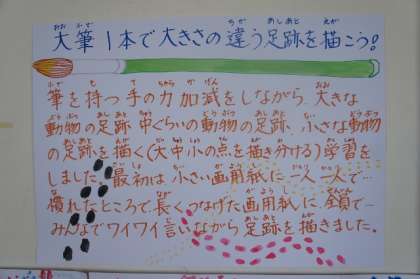 大筆1本で大きさの違う足跡を描こう!
筆を持つ手の力加減をしながら、大きな
動物の足跡、中ぐらいの動物の足跡、小さな動物
の足跡を描く(大中小の点を描き分ける)学習を
しました。最初は小さい画用紙に一人一人で…
慣れたところで、長くつなげた画用紙に全員で…
みんなでワイワイ言いながら足跡を描きました。